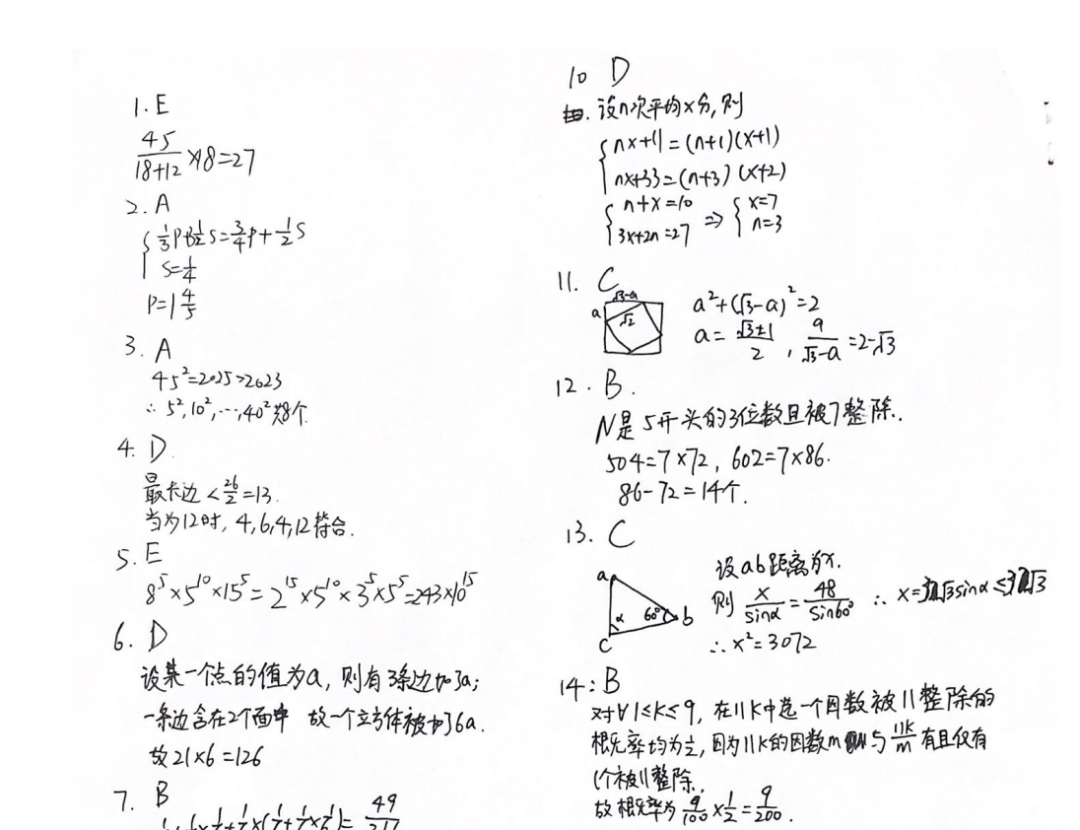 1. E
45/(18+12) ×18=27
2. A
{ 1/3P+1/2S=3/4P+1/2S
S=1/4
P=1 4/5
3. A
45²=2025>2023
∴ 5²,10²,…,40²共8个.
4. D
最长边<26/2=13.
当为12时, 4,6,4,12符合.
5. E
8⁵×5¹⁰×15⁵=2¹⁵×5¹⁰×3⁵×5⁵=243×10¹⁵
6. D
设某一个点的值为a, 则有3条边加了a;
一条边含在2个面中 故一个立方体被加了6a.
故21×6=126
7. B
10 D
设n次平均x分,则
{ nx+11=(n+1)(x+1)
nx+33=(n+3)(x+2)
{ n+x=10
3x+2n=27 ⇒ { x=7
n=3
11. C
√3-a
a √2
a²+(√3-a)²=2
a=(√3±1)/2, a/(√3-a)=2-√3
12. B.
N是5开头的3位数且被7整除.
504=7×72, 602=7×86.
86-72=14个.
13. C
a α 60° b c
设ab距离为x.
则 x/sinα=48/sin60° ∴ x=32√3sinα≤32√3
∴x²=3072
14: B
对∀1≤K≤9, 在11K中选一个因数被11整除的
概率均为1/2, 因为11K的因数m与11K/m有且仅有
1个被11整除.
故概率为9/100×1/2=9/200.